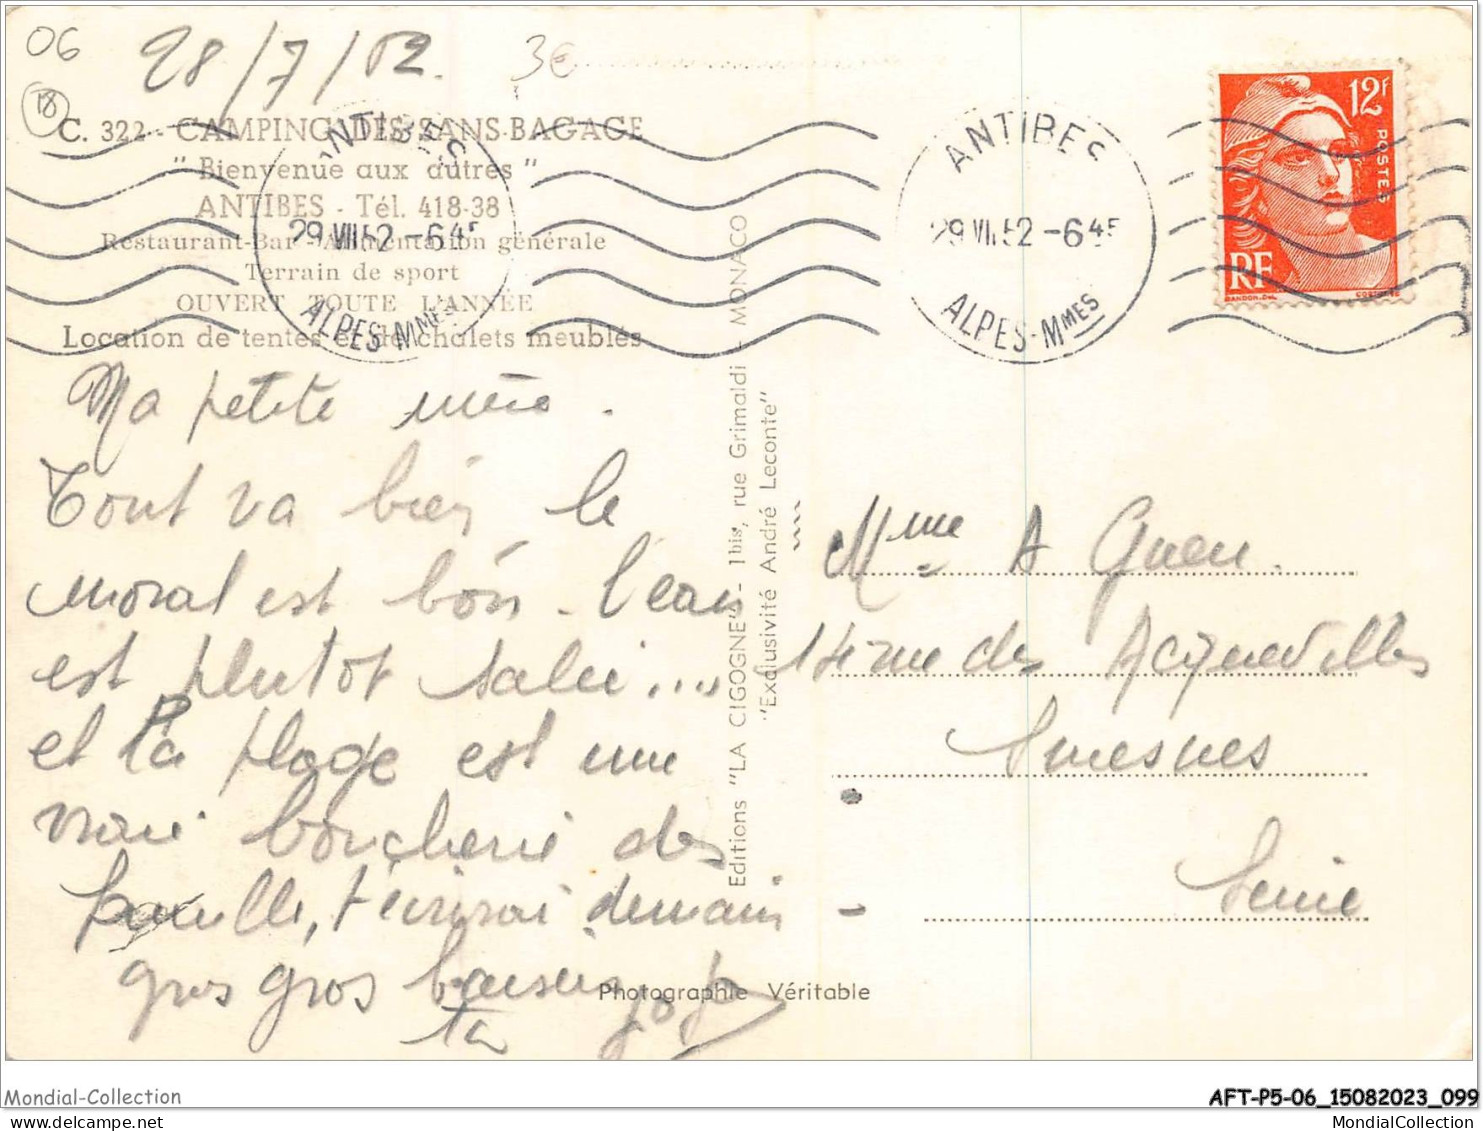 06
28/7/52.
3€
18
C. 322 - CAMPING DES SANS-BAGAGE
"Bienvenue aux autres"
ANTIBES - Tél. 418-38
Restaurant-Bar - Alimentation générale
Terrain de sport
OUVERT TOUTE L'ANNÉE
Location de tentes et de chalets meublés
ANTIBES
29 VII 52 - 6 45
ALPES-MMES
ANTIBES
29 VII 52 - 6 45
ALPES-MMES
12F
POSTES
RF
GANDON.DEL
Ma petite mère.
Tout va bien le
moral est bon - l'eau
est plutot salée...
et la plage est une
vraie boucherie des
famille, t'écrirai demain -
gros gros baisers
ta jojo
Editions "LA CIGOGNE" - 1bis, rue Grimaldi - MONACO
"Exclusivité André Leconte"
Photographie Véritable
Mme A
rue des
Suresnes
Seine
Mondial-Collection
AFT-P5-06_15082023_099
MondialCollection